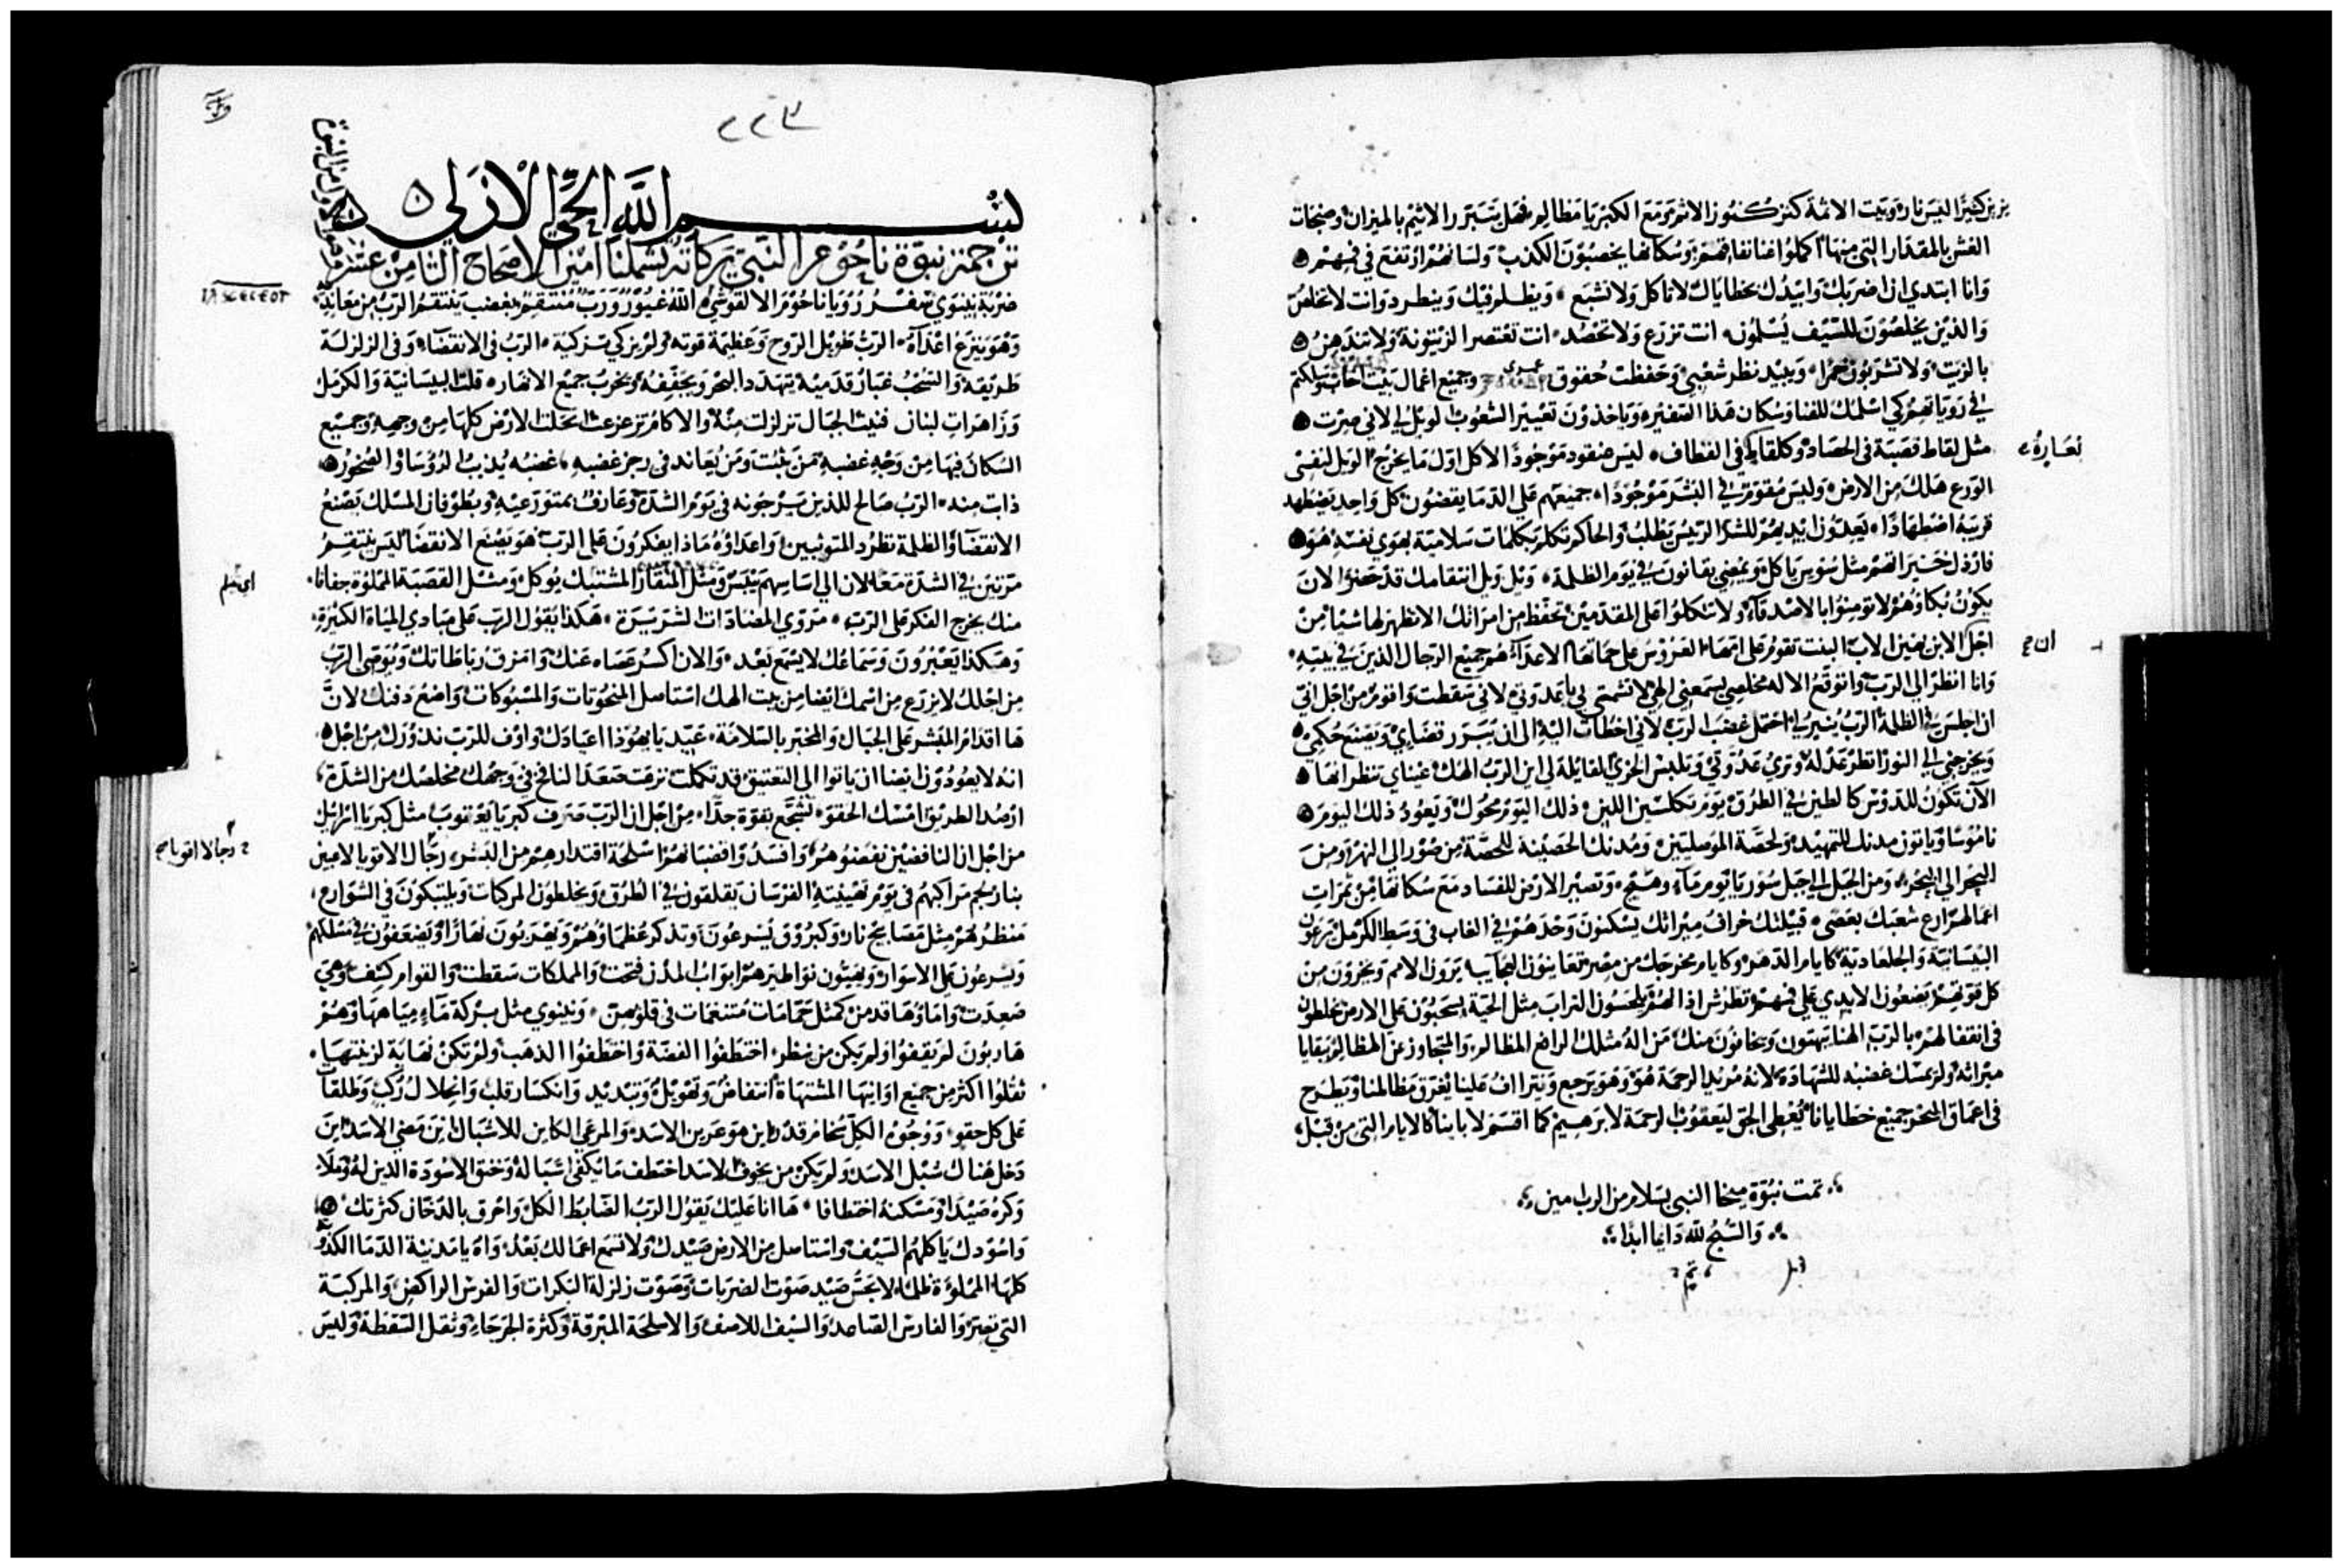 كبيرًا البيس نار وبيت الاثمة كنز كنوز الاثم ومع الكبريا مظالم فهل يتبرر الاثيم بالميزان وصنجات
الغش بالمقدار التي منها اكملوا اغنانفاقهم وسكانها يخصبون الكذب ولسانهم ارتفع في فيهم
وانا ابتدي ان اضربك وابيدك بخطاياك لانك تاكل ولا تشبع ويظلم فيك وينطرد وانت لا تخلص
والذين يخلصون للسيف يسلمون انت تزرع ولا تحصد انت تعتصر الزيتونة ولا تندهن
بالزيت ولا تشربون خمرا ويبيد نظر شعبي وحفظت حقوق عمري وجميع اعمال بيت اخاب وسلكتم
في روياتهم كي اسلمك للفنا وسكان هذا التفتيره وياخذون تعيير الشعوب الويل لي لاني صرت
مثل لقاط قصبة في الحصاد وكلقاط في القطاف ليس عنقود موجودًا لاكل اول ما يخرج الويل لنفسي
بعبارة
الورع هلك من الارض وليس مقوم في البشر موجودًا جميعهم على الدما يقضون كل واحد يضطهد
قريبه اضطهادًا يعدون ايديهم للشر الرئيس يطلب والحاكم تكلم بكلمات سلامية بهوي نفسه هو
فارذل خيراتهم مثل سوس ياكل ويمضي بقانون في يوم الظلمة ويل ويل انتقامك قد حضر الان
يكون بكاوهم لا تومنوا بالاصدقاء ولا تتكلوا على المقدمين تحفظ من امراتك الا تظهر لها شيا من
اجل الابن يهين الاب البنت تقوم على امها العروس على حماتها الاعداء هم جميع الرجال الذين في بيته
ان ح
وانا انظر الى الرب واتوقع الاله مخلصي يسمعني الهي لا تشمتي بي يا عدوتي لاني سقطت واقوم من اجل اني
ان اجلس في الظلمة الرب ينير لي احتمل غضب الرب لاني اخطات اليه الى ان يتبرر قضاي ويصنع حكمي
ويخرجني الى النور انظر عدله وتري عدوتي وتلبس الخزي القايلة لي اين الرب الهك عيناي تنظرانها
الان تكون للدوس كالطين في الطرق يوم تكلسين اللبن ذلك اليوم محوك ويعود ذلك اليوم
ناموسا وياتون مدنك للتمهيد ولحصة الموصليين ومدنك الحصينة للحصة من صور الى النهر ومن
البحر الى البحر ومن الجبل الى جبل سور يا يوم ماء وهيج وتصير الارض للفساد مع سكانها من ثمرات
اعمالهم ارع شعبك بعصى قبيلتك خراف ميراثك يسكنون وحدهم في الغاب في وسط الكرمل يرعون
البيسانية والجلعادية كايام الدهر وكايام مخرجك من مصر تعاينون العجايب يرون الامم ويخزون من
كل قوتهم يضعون الايدي على فيهم تطرش اذانهم يلحسون التراب مثل الحية يسحبون على الارض يختلطون
في انقفالهم بالرب الهنا يبهتون ويخافون منك من اله مثلك الرافع المظالم والمتجاوز عن المظالم لبقايا
ميراثه ولم يمسك غضبه للشهادة لانه مريد الرحمة هو وهو يرجع ويتراف علينا يغرق مظالمنا ويطرح
في اعماق البحر جميع خطايانا يعطي الحق ليعقوب الرحمة لابرهيم كما اقسم لابانيا كالايام التي من قبل
تمت نبوة ميخا النبي بسلام من الرب امين
والسبح لله دايما ابدا
تم
٢٢٣
بسم الله الحي الازلي
ترجمة نبوة ناحوم النبي بركاته تشملنا امين الاصحاح الثامن عشر
ضربة نينوي سفر رويا ناحوم الالقوشي الله غيور ورب منتقم بغضب ينتقم الرب من معانديه
وهو ينزع اعداه الرب طويل الروح وعظيمة قوته ولم يزكي تزكية الرب في الانقضا وفي الزلزلة
طريقه والسحب غبار قدميه يتهدد البحر ويجففه ويخرب جميع الانهار قلت البيسانية والكرمل
وزاهرات لبنان فنيت الجبال تزلزلت منه والاكام تزعزعت انحلت الارض كلها من وجهه وجميع
السكان فيها من وجه غضبه من يثبت ومن يعاند في رجز غضبه غضبه يذيب الروسا والصخور
ذابت منه الرب صالح للذين يرجونه في يوم الشدة وعارف بمتورعيه وبطوفان المسلك يصنع
الانقضا والظلمة تطرد المتوثبين واعداوه ماذا يفكرون على الرب هو يصنع الانقضا ليس ينتقم
مرتين في الشدة معا لان الى اساسهم ييبس ومثل المنقار المشتبك يوكل ومثل القصبة المملوة جفافا
منك يخرج الفكر على الرب مروي المضادات الشريرة هكذا يقول الرب على مبادي المياه الكثيرة
وهكذا يعبرون وسماعك لا يسمع بعد والان اكسر عصاه عنك وامزق رباطاتك ويوصي الرب
من اجلك لا يزرع من اسمك ايضا من بيت الهك استاصل المنحوتات والمسبوكات واضع دفنك لان
ها اقدام المبشر على الجبال والمخبر بالسلامة عيد يا يهوذا اعيادك واوف للرب نذورك من اجل
انه لا يعودون ايضا ان ياتوا الى التعتيق قد تكملت نزعت صعد النافخ في وجهك مخلصك من الشدة
ارصد الطريق امسك الحقو تشجع بقوة جدًا من اجل ان الرب صرف كبريا يعقوب مثل كبريا اسرائيل
رجالا اقويا
من اجل ان النافضين نفضوهم وافسدوا قضبانهم اسلحة اقتدارهم من البشر رجال الاقويا لاعبين
بنار لجم مراكبهم في يوم تهيئته الفرسان يقلقون في الطرق ويختلطون المركبات ويلتبكون في الشوارع
منظرهم مثل مصابيح نار وكبروق يسرعون وتذكر عظماوهم ويهربون نهارًا ويضعفون في مسلكهم
ويسرعون على الاسوار ويهيئون نواطيرهم ابواب المدن فتحت والمملكات سقطت والقوام كشف وهي
صعدت واماوها قدمن كمثل حمامات متنغمات في قلوبهن ونينوي مثل بركة ماء مياهها وهم
هاربون لم يقفوا ولم يكن من ينظر اختطفوا الفضة واختطفوا الذهب ولم تكن نهاية لزينتها
ثقلوا اكثر من جميع اوانيها المشتهاة انتفاض وتهويل وتبديد وانكسار قلب وانحلال ركب وطلقات
على كل حقو ووجوه الكل سخام قدر اين هو عرين الاسد والمرعى الكاين للاشبال اين مضي الاسد اين
دخل هناك شبل الاسد ولم يكن من يخوف الاسد اختطف ما يكفي اشباله وخنق لاسوده الذين له وملا
وكره صيدا ومسكنه اختطافا ها انا عليك يقول الرب الضابط الكل واحرق بالدخان كثرتك
واسودك ياكلهم السيف واستاصل من الارض صيدك ولا تسمع اعمالك بعد واه يا مدينة الدما الكذوبة
كلها المملوة ظلما لا يجس صيد صوت الضربات وصوت زلزلة البكرات والفرس الراكض والمركبة
التي تصر والفارس الصاعد والسيف اللاصف والاسلحة المبرقة وكثرة الجرحاء وثقل السقطة وليس